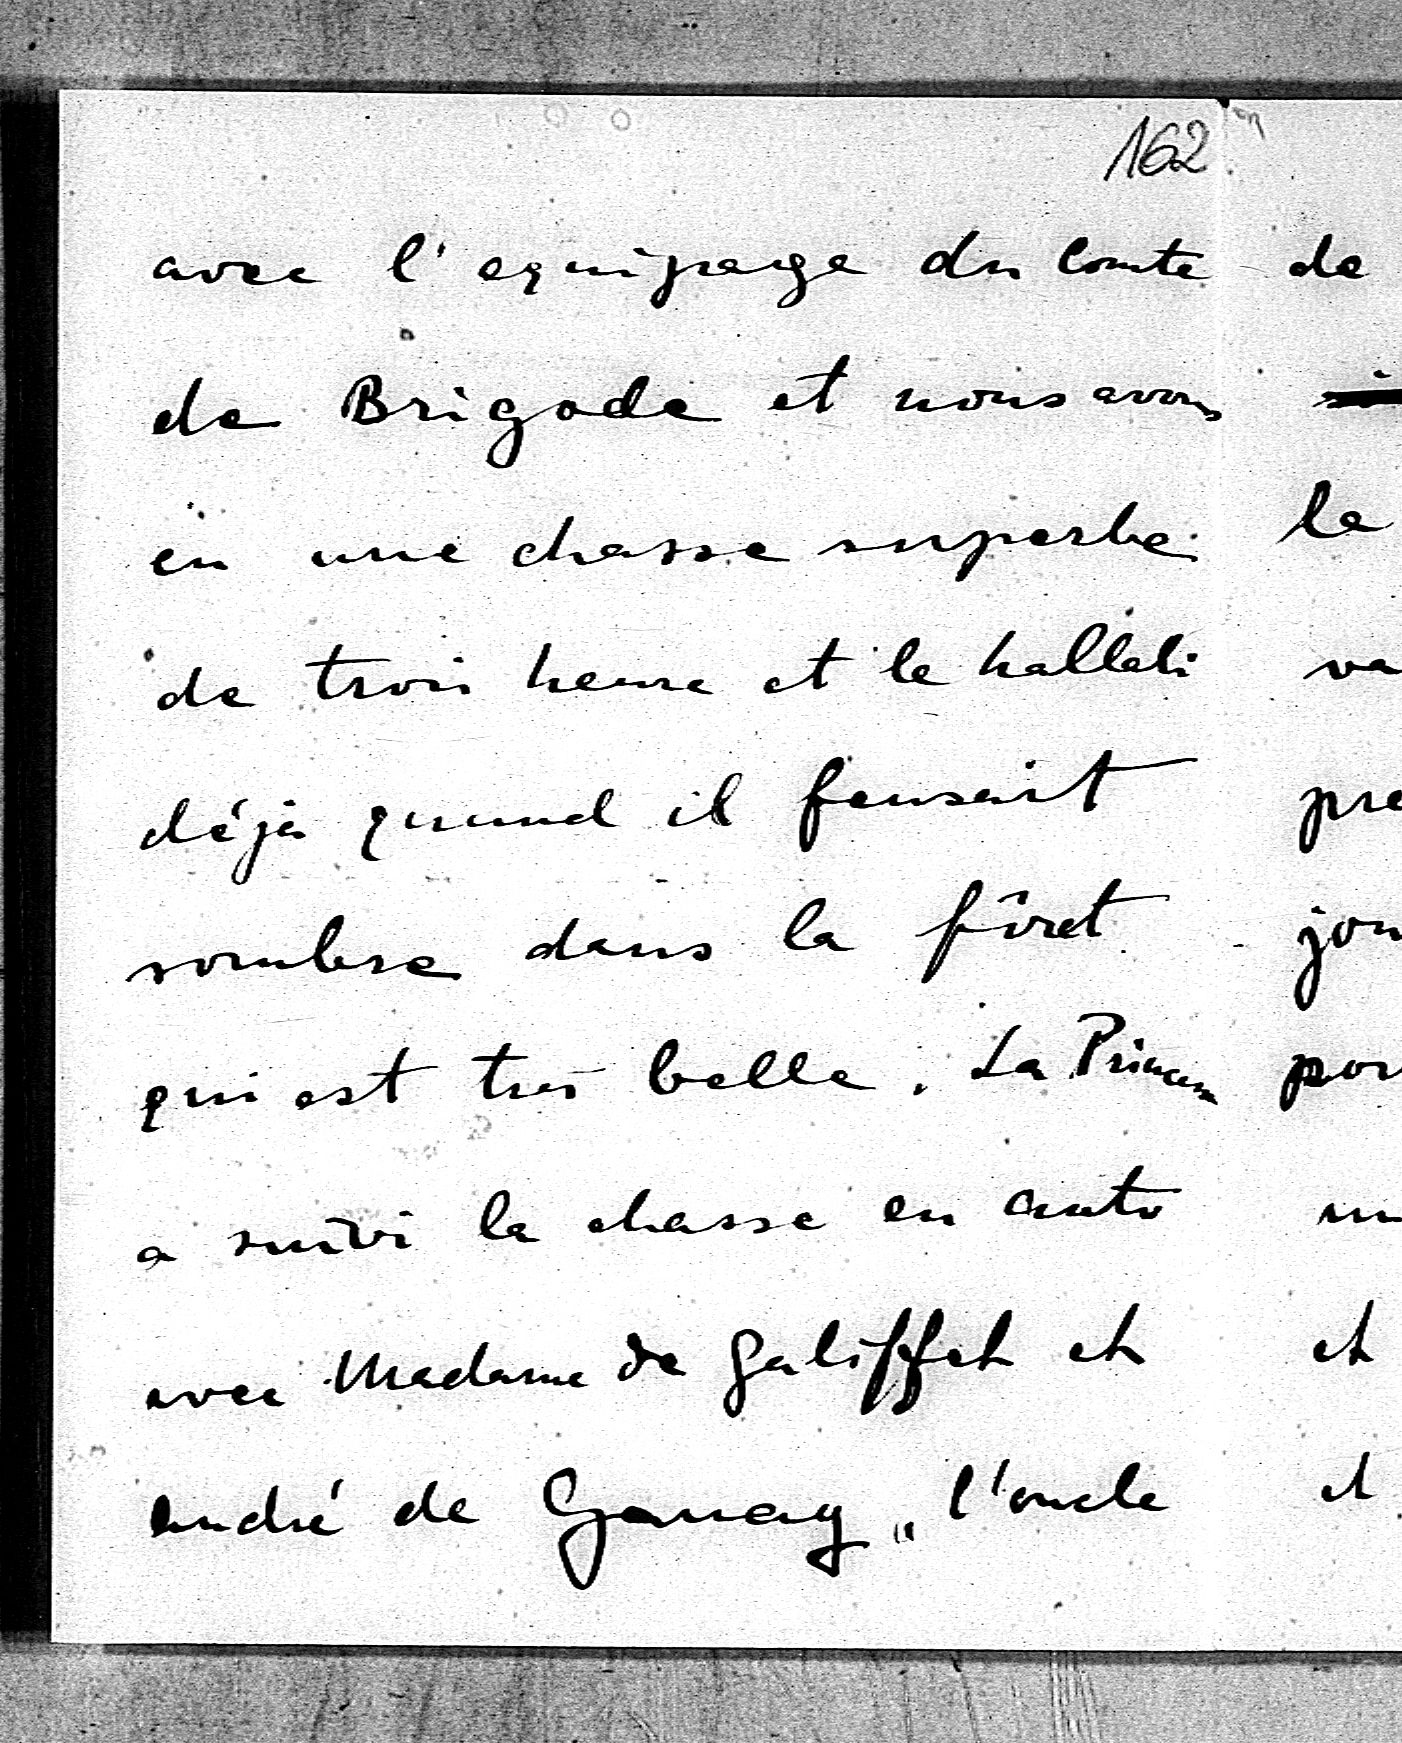 162
avec l'equipage du Comte
de Brigode et nous avons
eu une chasse superbe
de trois heure et le hallali
déjà quand il faisait
sombre dans la fôret
qui est tres belle. La Princesse
a suivi la chasse en auto
avec Madame de Galiffet et
André de Ganay „ l'oncle
de
le
va
pre
jou
pou
un
et
et